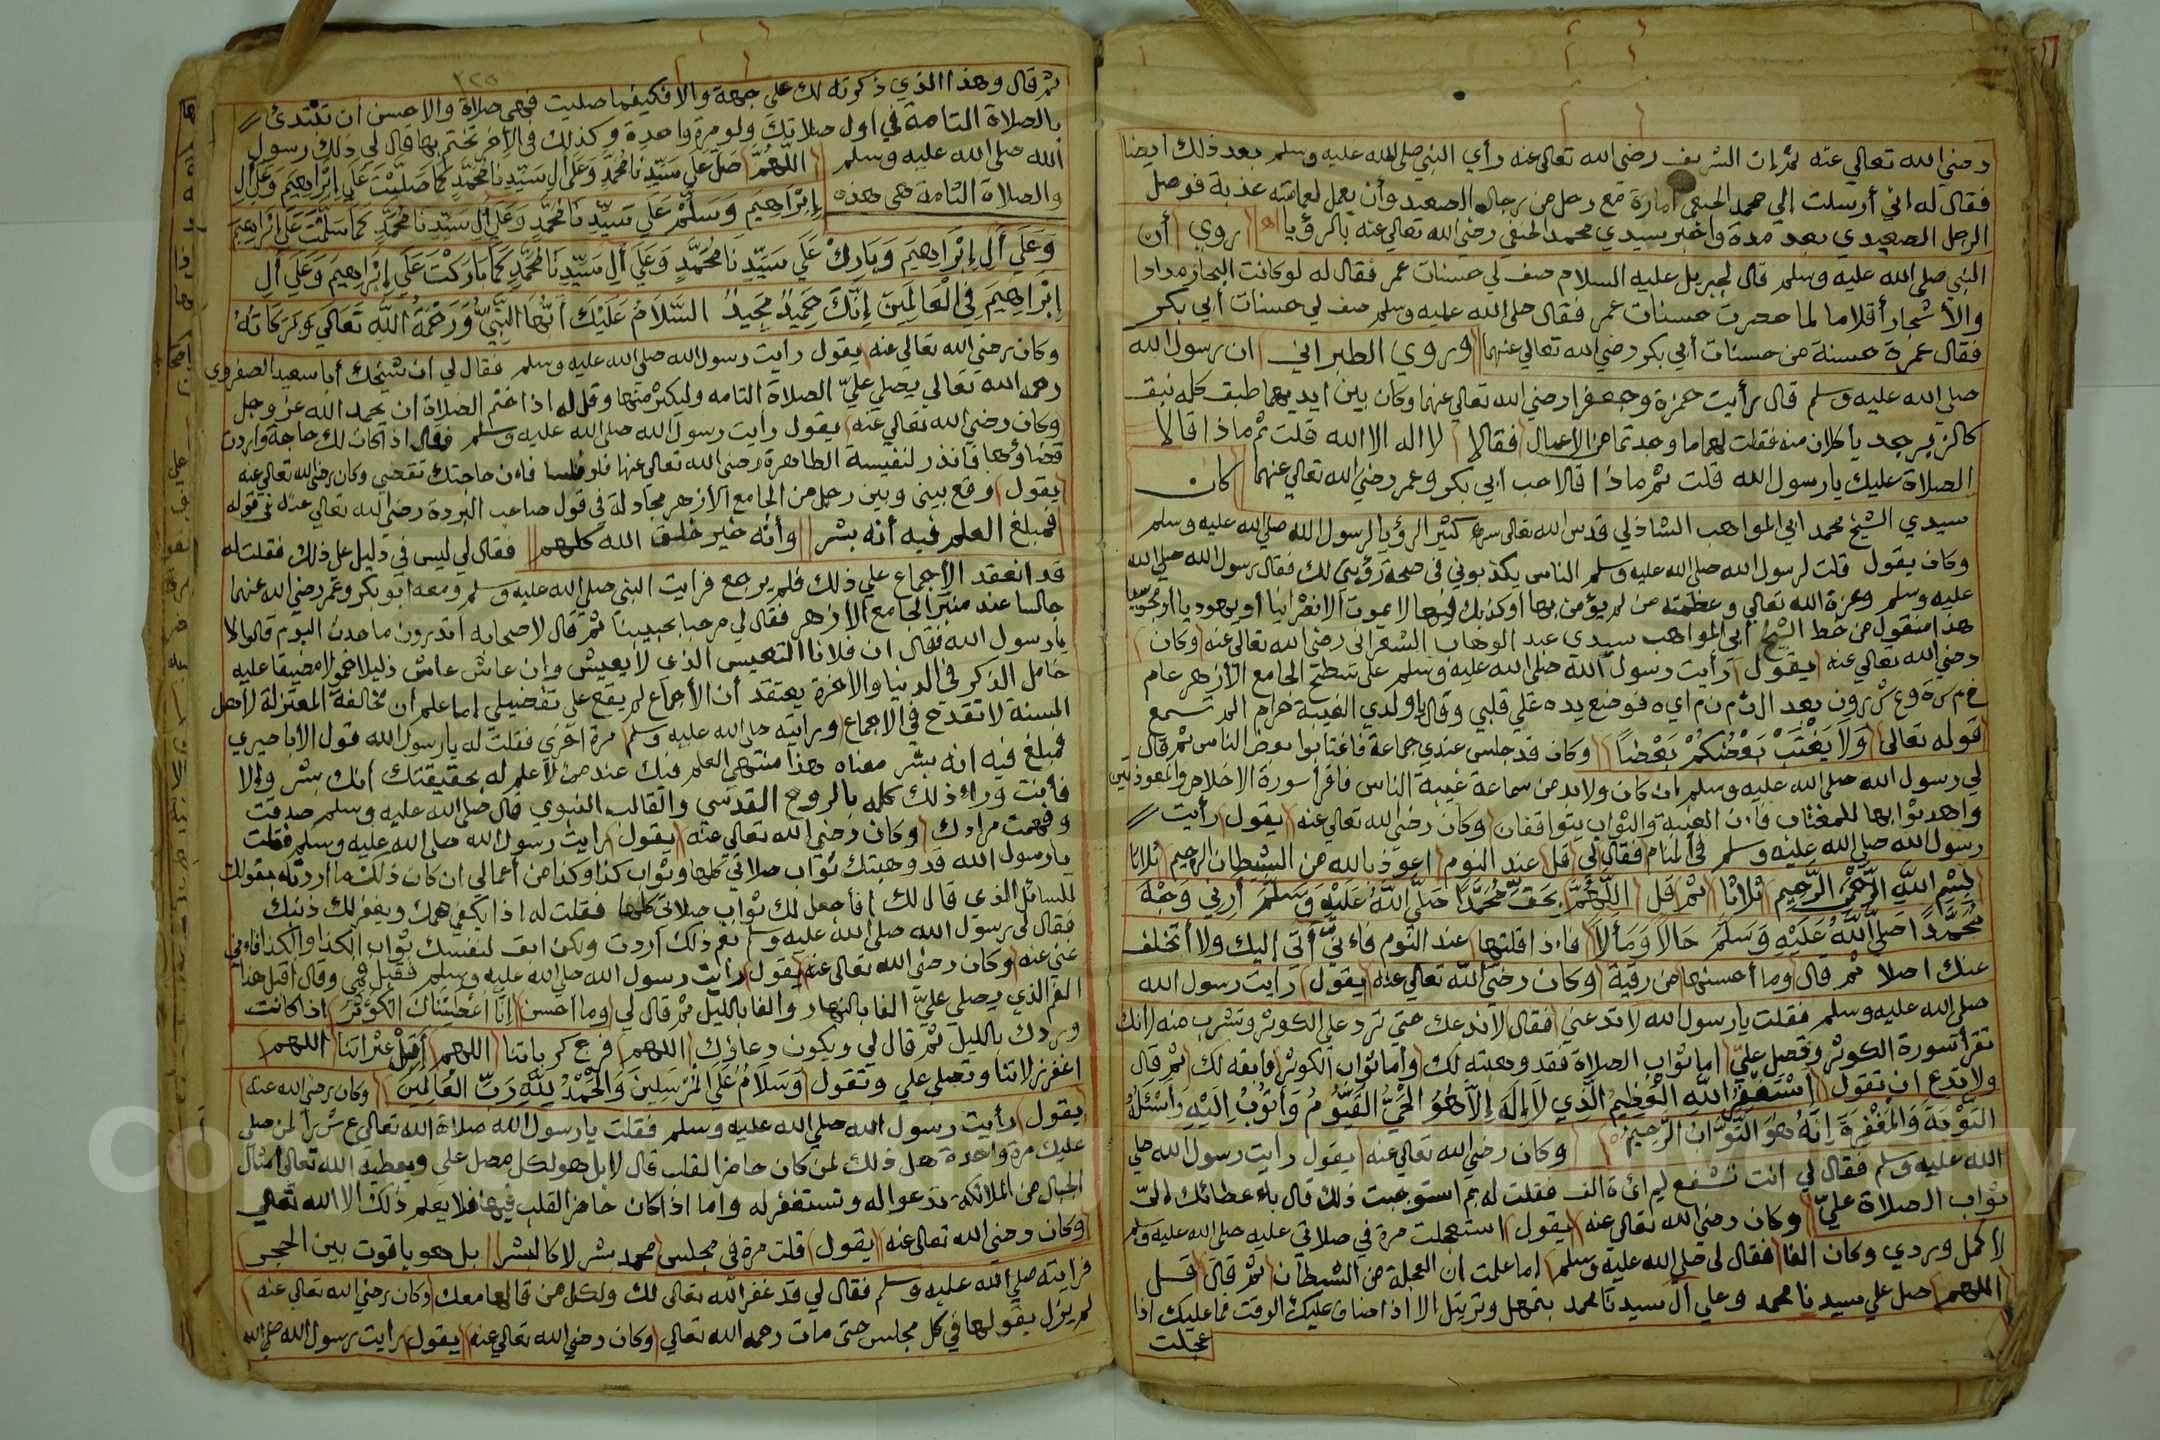 رضي الله تعالى عنه ثم إن الشريف رضى الله تعالى عنه رأي النبي صلى الله عليه وسلم بعد ذلك ايضا
فقال له اني أرسلت إلي محمد الحنفي أمارة مع رجل من رجال الصعيد وأن يعمل لعمامته عذبة فوصل
الرجل الصعيدي بعد مدة واخبر سيدي محمد الحنفي رضي الله تعالى عنه بالرؤيا اه روي أن
النبي صلى الله عليه وسلم قال لجبريل عليه السلام صف لي حسنات عمر فقال له لو كانت البحار مدادا
والأشجار أقلاما لما حصرت حسنات عمر فقال صلى الله عليه وسلم صف لي حسنات أبي بكر
فقال عمر حسنة من حسنات أبي بكر رضي الله تعالى عنهما وروي الطبراني ان رسول الله
صلى الله عليه وسلم قال رأيت حمزة وجعفرا رضي الله تعالى عنهما وكان بين ايديهما طبق كله نبق
كالزبرجد يأكلان منه فقلت لهما ما وجدتما من الأعمال فقالا لا اله الا الله قلت ثم ماذا قالا
الصلاة عليك يا رسول الله قلت ثم ماذا قالا حب أبي بكر وعمر رضي الله تعالى عنهما كان
سيدي الشيخ محمد ابي المواهب الشاذلي قدس الله تعالى سره كثير الرؤيا لرسول الله صلى الله عليه وسلم
وكان يقول قلت لرسول الله صلى الله عليه وسلم الناس يكذبوني في صحة رؤيتي لك فقال رسول الله صلى الله
عليه وسلم وعزة الله تعالى وعظمته من لم يؤمن بها أو كذبك فيها لا يموت الا نصرانيا او يهوديا او مجوسيا
هذا منقول من خط الشيخ أبي المواهب سيدي عبد الوهاب الشعراني رضى الله تعالى عنه وكان
رضي الله تعالى عنه يقول رأيت رسول الله صلى الله عليه وسلم على سطح الجامع الأزهر عام
فوضع يده على قلبي وقال يا ولدي الغيبة حرام الم تسمع
قوله تعالى وَلَا يَغْتَبْ بَعْضُكُمْ بَعْضاً وكان قد جلس عندي جماعة فاغتابوا بعض الناس ثم قال
لي رسول الله صلى الله عليه وسلم ان كان ولا بد من سماعة غيبة الناس فاقرأ سورة الاخلاص والمعوذتين
واهد ثوابها للمغتاب فإن الغيبة والثواب يتواقفان وكان رضي الله تعالى عنه يقول رأيت
رسول الله صلى الله عليه وسلم في المنام فقال لي قل عند النوم اعوذ بالله من الشيطان الرجيم ثلاثا
بِسْمِ اللَّهِ الرَّحْمَنِ الرَّحِيمِ ثلاثا ثم قل اللَّهُمَّ بِحَقِّ مُحَمَّدٍ صَلَّى اللَّهُ عَلَيْهِ وَسَلَّمَ أَرِنِي وَجْهَ
مُحَمَّدٍ صَلَّى اللَّهُ عَلَيْهِ وَسَلَّمَ حَالاً وَمَآلاً فاذا قلتها عند النوم فإني آتي إليك ولا أتخلف
عنك اصلا ثم قال وما أحسنها من رقية وكان رضي الله تعالى عنه يقول رايت رسول الله
صلى الله عليه وسلم فقلت يا رسول الله لا تدعني فقال لا ندعك حتى ترد علي الكوثر وتشرب منه لانك
تقرأ سورة الكوثر وتصلي عليّ اما ثواب الصلاة فقد وهبته لك وأما ثواب الكوثر فأبقه لك ثم قال
ولا تدع ان تقول أَسْتَغْفِرُ اللَّهَ الْعَظِيمَ الَّذِي لَا إِلَهَ إِلَّا هُوَ الْحَيُّ الْقَيُّومُ وَأَتُوبُ إِلَيْهِ وَأَسْئَلُهُ
التَّوْبَةَ وَالْمَغْفِرَةَ إِنَّهُ هُوَ التَّوَّابُ الرَّحِيمُ وكان رضي الله تعالى عنه يقول رايت رسول الله صلى
الله عليه وسلم فقال لي أنت تشفع لمائة الف فقلت له بم استوجبت ذلك قال بإعطائك إليّ
ثواب الصلاة عليّ وكان رضي الله تعالى عنه يقول استعجلت مرة في صلاتي عليه صلى الله عليه وسلم
لا كمل وردي وكان الفا فقال لي صلى الله عليه وسلم اما علمت ان العجلة من الشيطان ثم قال قل
اللهم صل علي سيدنا محمد وعلي آل سيدنا محمد بتمهل وترتيل الا اذا ضاق عليك الوقت فما عليك اذا
عجلت
١٢٥
ثم قال وهذا الذي ذكرته لك على جهة والا فكيفما صليت فهي صلاة والاحسن ان تبتدئ
بالصلاة التامة في أول صلاتك ولو مرة واحدة وكذلك في الآخر تختم بها قال لي ذلك رسول
الله صلى الله عليه وسلم اللَّهُمَّ صَلِّ عَلَى سَيِّدِنَا مُحَمَّدٍ وَعَلَى آلِ سَيِّدِنَا مُحَمَّدٍ كَمَا صَلَّيْتَ عَلَى إِبْرَاهِيمَ وَعَلَى آلِ
والصلاة التامة هي هذه إِبْرَاهِيمَ وَسَلِّمْ عَلَى سَيِّدِنَا مُحَمَّدٍ وَعَلَى آلِ سَيِّدِنَا مُحَمَّدٍ كَمَا سَلَّمْتَ عَلَى إِبْرَاهِيمَ
وَعَلَى آلِ إِبْرَاهِيمَ وَبَارِكْ عَلَى سَيِّدِنَا مُحَمَّدٍ وَعَلَى آلِ سَيِّدِنَا مُحَمَّدٍ كَمَا بَارَكْتَ عَلَى إِبْرَاهِيمَ وَعَلَى آلِ
إِبْرَاهِيمَ فِي الْعَالَمِينَ إِنَّكَ حَمِيدٌ مَجِيدٌ السَّلَامُ عَلَيْكَ أَيُّهَا النَّبِيُّ وَرَحْمَةُ اللَّهِ تَعَالَى وَبَرَكَاتُهُ
وكان رضي الله تعالى عنه يقول رأيت رسول الله صلى الله عليه وسلم فقال لي ان شيخك أبا سعيد الصفروي
رحمه الله تعالى يصلي عليّ الصلاة التامه وليكثر منها وقل له اذا ختم الصلاة ان يحمد الله عز وجل
وكان رضي الله تعالى عنه يقول رأيت رسول الله صلى الله عليه وسلم فقال اذا كان لك حاجة واردت
قضاؤها فانذر لنفيسة الطاهرة رضي الله تعالى عنها فلو فلسا فإن حاجتك تقضي وكان رضي الله تعالى عنه
يقول وقع بيني وبين رجل من الجامع الأزهر مجادلة في قول صاحب البردة رضي الله تعالى عنه في قوله
فمبلغ العلم فيه أنه بشر وأنه خير خلق الله كلهم فقال لي ليس في دليل على ذلك فقلت له
قد انعقد الأجماع علي ذلك فلم يرجع فرايت النبي صلى الله عليه وسلم ومعه أبو بكر وعمر رضي الله عنهما
جالسا عند منبر الجامع الأزهر فقال لي مرحبا بحبيبنا ثم قال لأصحابه أتدرون ما حدث اليوم قالوا لا
يا رسول الله فقال ان فلانا التعيس الذي لا يعيش وإن عاش عاش ذليلا خمولا مضيقا عليه
خامل الذكر في الدنيا والاخرة يعتقد أن الأجماع لم يقع علي تفضيلي اما علم أن مخالفة المعتزلة لأهل
السنة لا تقدح في الاجماع ورايته صلى الله عليه وسلم مرة أخري فقلت له يا رسول الله قول الأباصيري
فمبلغ فيه انه بشر معناه هذا منتهي العلم فيك عند من لا علم له بحقيقتك انك بشر وإلا
فأنت وراء ذلك كله بالروح القدسي والقالب النبوي قال صلى الله عليه وسلم صدقت
وفهمت مرادك وكان رضي الله تعالى عنه يقول رايت رسول الله صلى الله عليه وسلم فقلت
يا رسول الله قد وهبتك ثواب صلاتي كلها وثواب كذا وكذا من أعمالي ان كان ذلك ما اردته بقولك
للسائل الذي قال لك أفأجعل لك ثواب صلاتي كلها فقلت له اذا يكفي همك ويغفر لك ذنبك
فقال لي رسول الله صلى الله عليه وسلم نعم ذلك اردت ولكن ابق لنفسك ثواب الكذا والكذا فإني
غني عنه وكان رضي الله تعالى عنه يقول رأيت رسول الله صلى الله عليه وسلم فقبل فمي وقال أقبل هذا
الفم الذي يصلي عليّ الفا بالنهار والفا بالليل ثم قال لي وما احسن إِنَّا أَعْطَيْنَاكَ الْكَوْثَرَ اذا كانت
وردك بالليل ثم قال لي ويكون دعاؤك اللهم فرج كرباتنا اللهم أقل عثراتنا اللهم
اغفر زلاتنا وتصلي علي وتقول وَسَلَامٌ عَلَى الْمُرْسَلِينَ وَالْحَمْدُ لِلَّهِ رَبِّ الْعَالَمِينَ وكان رضي الله عنه
يقول رأيت رسول الله صلى الله عليه وسلم فقلت يا رسول الله صلاة الله تعالى عشرا لمن صلي
عليك مرة واحدة هل ذلك لمن كان حاضر القلب قال لا بل هو لكل مصل علي ويعطيه الله تعالى أمثال
الجبال من الملائكة تدعوا له وتستغفر له واما اذا كان حاضر القلب فيها فلا يعلم ذلك الا الله تعالى
وكان رضي الله تعالى عنه يقول قلت مرة في مجلس محمد بشر لا كالبشر بل هو ياقوت بين الحجر
فرايته صلى الله عليه وسلم فقال لي قد غفر الله تعالى لك ولكل من قالها معك وكان رضي الله تعالى عنه
لم يزل يقولها في كل مجلس حتى مات رحمه الله تعالى وكان رضي الله تعالى عنه يقول رايت رسول الله صلى الله